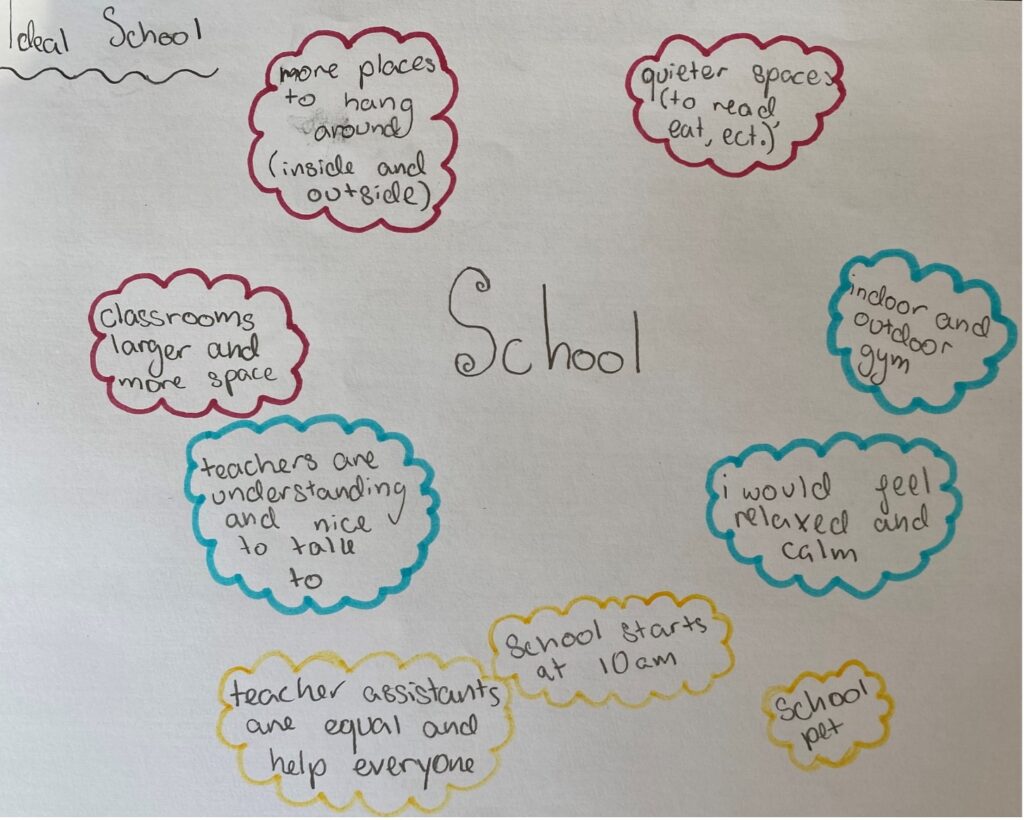 Ideal School
more places
to hang
around
(inside and
outside)
quieter spaces
(to read,
eat, ect.)
classrooms
larger and
more space
School
indoor and
outdoor
gym
teachers are
understanding
and nice
to talk
to
i would feel
relaxed and
calm
school starts
at 10am
teacher assistants
are equal and
help everyone
school
pet